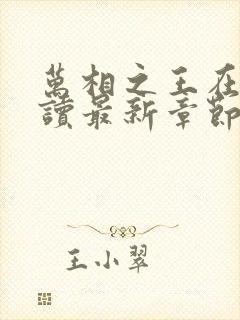 萬相之王在
讀最新章節
王小翠